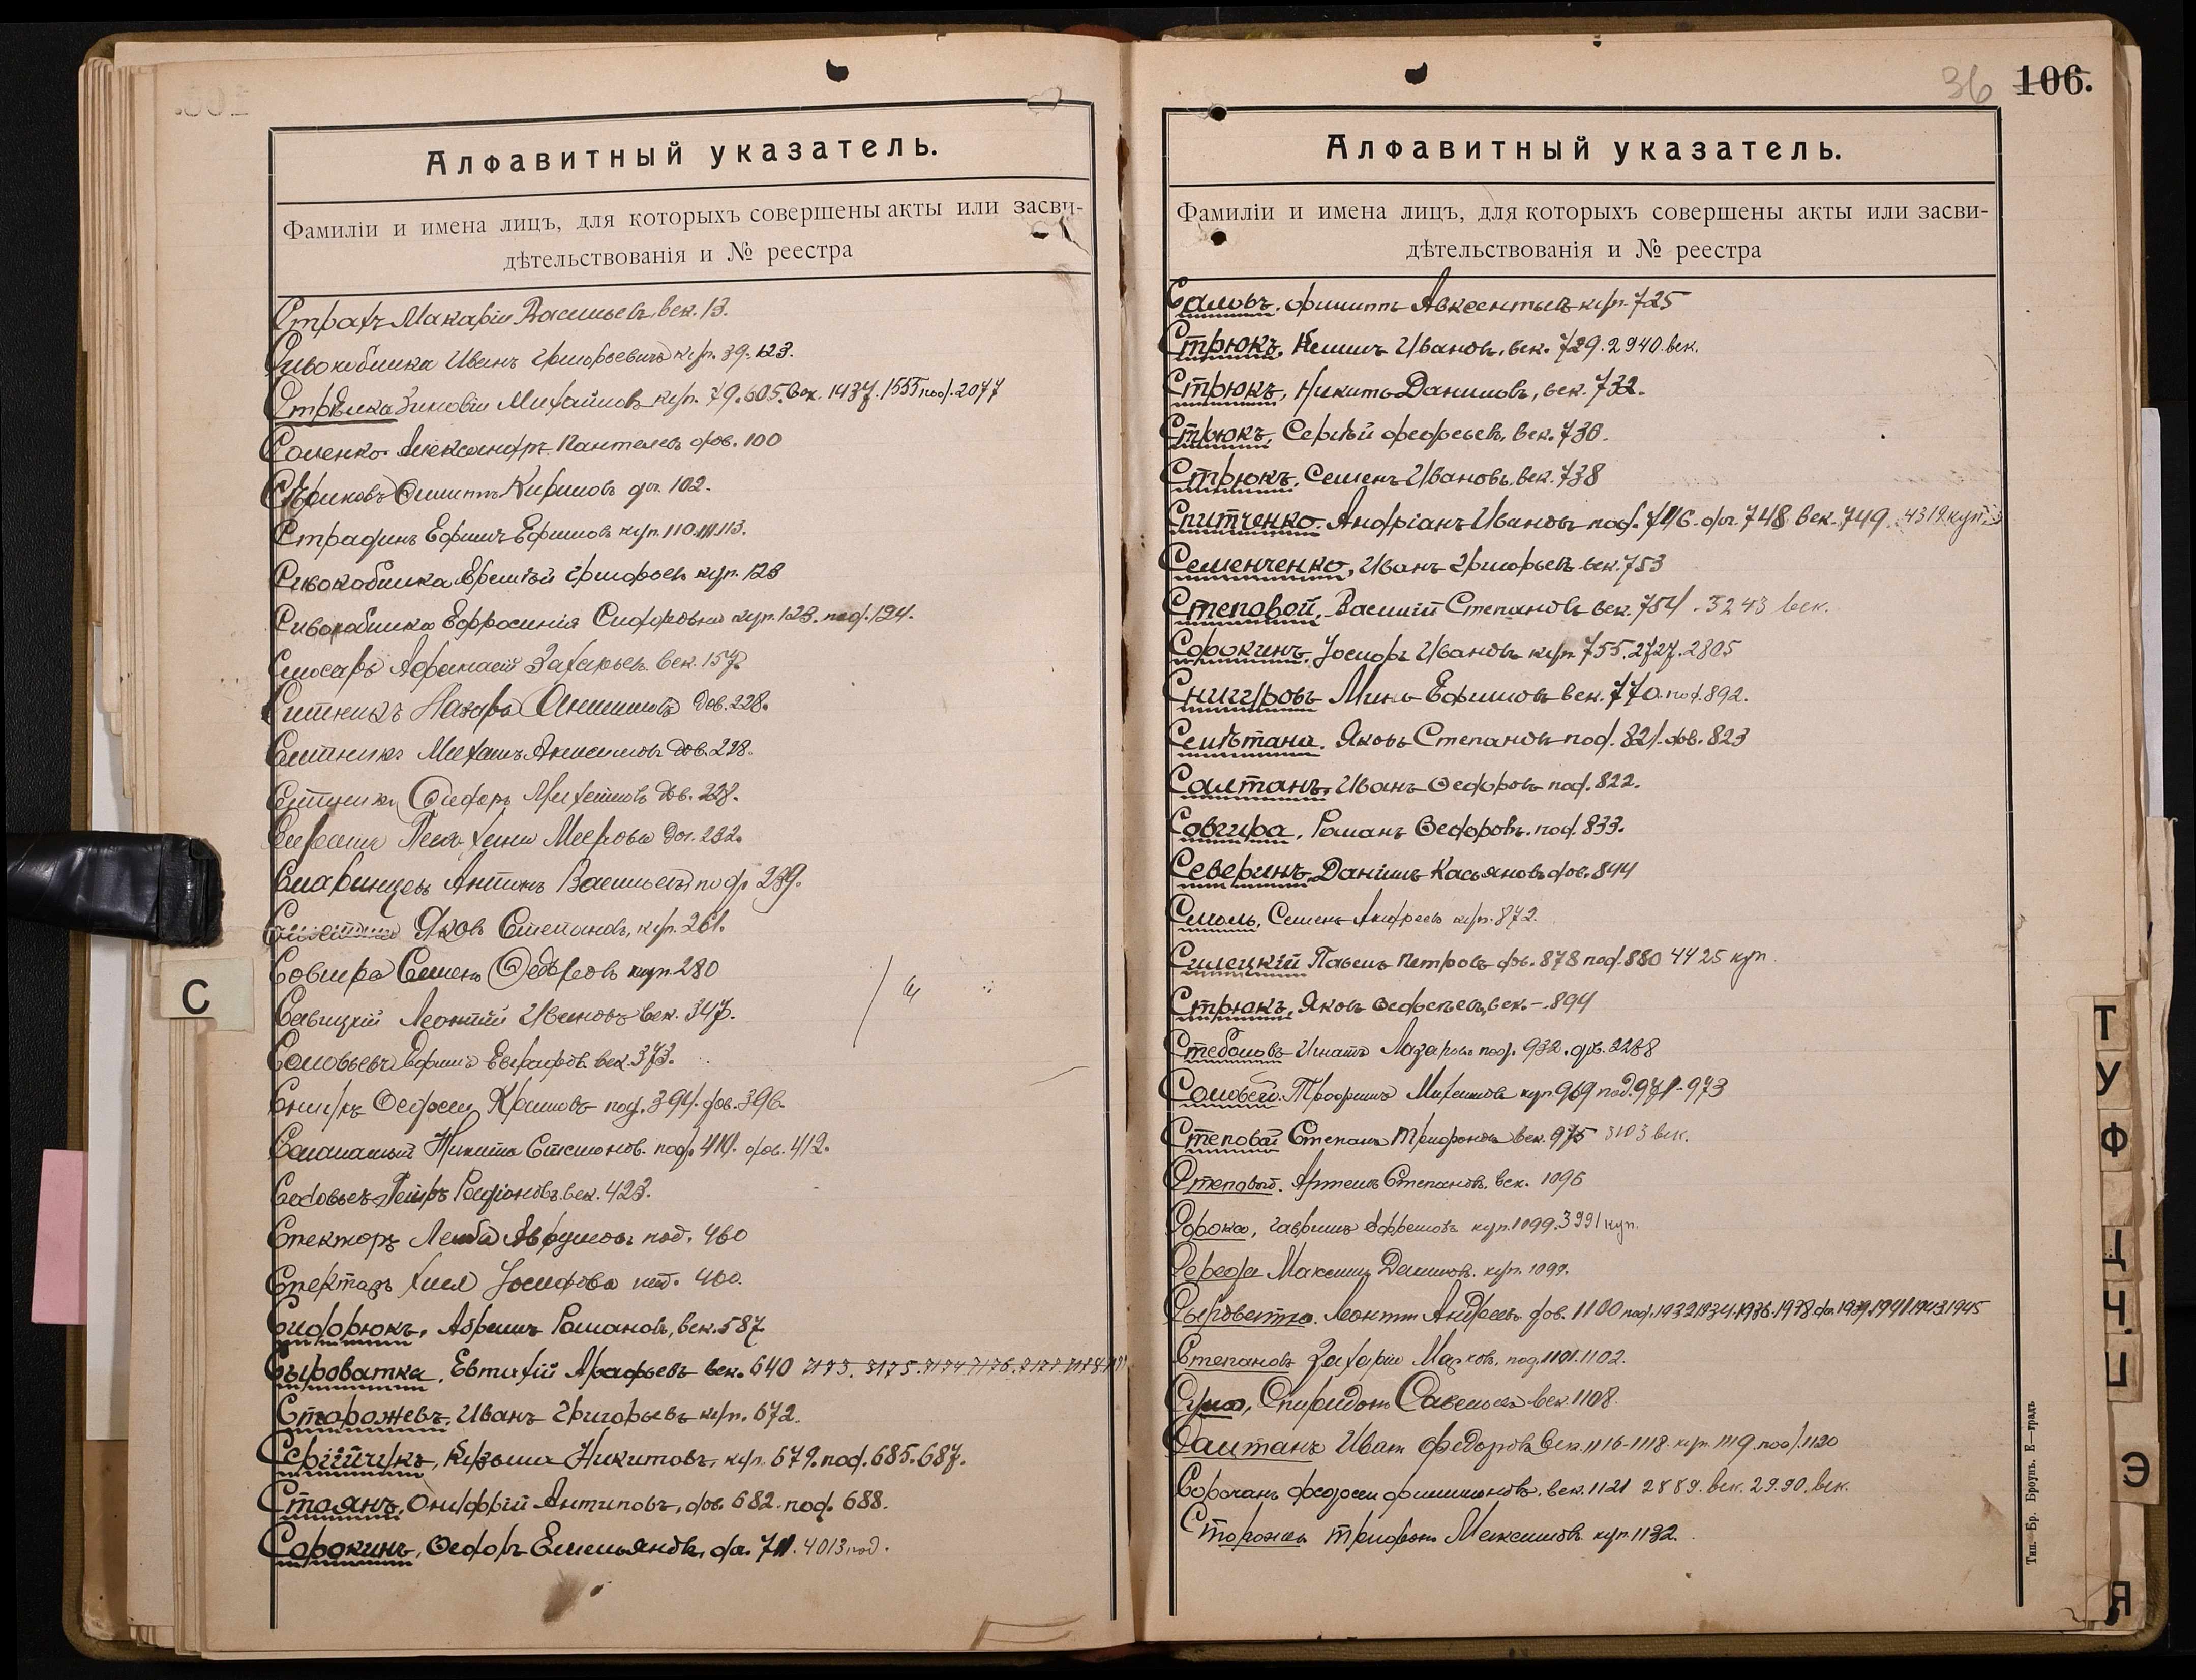 Алфавитный указатель.
Фамиліи и имена лицъ, для которыхъ совершены акты или засви-
дѣтельствованія и № реестра
Макарій Васильевъ, век. 13.
Сивокобилка Иванъ Григорьевичъ куп. 39. 123.
Стрѣлка Зиновій Михайловъ куп. 79. 605. век. 1437. 1555 под. 2077
Соленко Александръ Пантелеевъ дов. 100
Кириловъ 102.
Страдинъ Ефимъ Ефимовъ куп. 110. 111. 113.
Сивокобилка Еремѣй Григорьевъ куп. 123
Сивокобилка Ефросинія Сидоровна куп. 123. под. 124.
Слюсарь Афанасій Захарьевъ век. 157.
Ситникъ Назаръ Анисимовъ дов. 228.
Ситникъ Михаилъ Анисимовъ дов. 228.
Ситникъ Сидоръ Михайловъ дов. 228.
Меерова дог. 232.
Скаринцевъ Антонъ Васильевъ подр 239.
Яковъ Степановъ, куп. 261.
Совгира Семенъ Ѳедоровъ куп 280
Савицкій Леонтій Ивановъ век. 347.
Соловьевъ Ефимъ Евграфовъ. век. 373.
Снигуръ Ѳедосій Климовъ под. 394. дов. 396.
Никита под. 410. дов. 412.
Петръ Родіоновъ. век. 423.
Спекторъ Лейба Аврумовъ под. 460
Спекторъ Хая Іосифова под. 460.
Сидорюкъ, Абрамъ Романовъ, век. 587
Сыроватка, Евтихій век. 640
Сторожевъ, Иванъ Григорьевъ куп. 672.
Сергійчукъ, Кузьма Никитовъ, куп. 679. под. 685. 687.
Стоянъ, Онуфрій Антиповъ, дов. 682. под. 688.
Сорокинъ, Ѳедоръ Емельяновъ, дог. 711. 4013 под.
С
36 106.
Алфавитный указатель.
Фамиліи и имена лицъ, для которыхъ совершены акты или засви-
дѣтельствованія и № реестра
Саловъ, Филиппъ Авксентьевъ куп. 725
Стрюкъ, Ивановъ, век. 729. 2940. век.
Стрюкъ, Никита Даниловъ, век. 732.
Стрюкъ, Сергѣй век. 736.
Стрюкъ, Семенъ Ивановъ, век. 738
Спитченко. Андріанъ Ивановъ под. 746. дог. 748. век. 749. 4319 куп.
Семенченко, Иванъ Григорьевъ век. 753
Степовой, Василій Степановъ век. 754. 3243 век.
Сорокинъ, Іосифъ Ивановъ куп. 755. 2727. 2805
Снигуровъ Мина Ефимовъ век. 770. под. 892.
Сметана. Яковъ Степановъ под. 821. дов. 823
Салтанъ, Иванъ Ѳедоровъ под. 822.
Совгира, Романъ Ѳедоровъ. под. 833.
Северинъ, Даніилъ Касьяновъ дов. 844
Смоль, Семенъ Андреевъ куп. 872.
Силецкій Павелъ Петровъ дов. 878 под. 880 4425 куп.
Стрюкъ, Яковъ век. – 894
Стебловъ Игнатъ Лазаревъ под. 932. дов. 2288
Соловей. Трофимъ Михайловъ куп 969 под. 971-973
Степовой Степанъ Трифоновъ век. 975 3103 век.
Степовый. Артемъ Степановъ. век. 1096
Сорока, Гавріилъ Ефремовъ куп. 1099. 3991 куп.
Середа Максимъ Даниловъ. куп. 1099.
Сыроватко. Леонтій Андреевъ дов. 1100 под. 1932 1934. 1936. 1938 дог. 1939. 1941. 1943. 1945
Степановъ Захарій Марковъ, под. 1101. 1102.
Спиридонъ Савельевъ век. 1108.
Салтанъ Иванъ Федоровъ Век. 1116-1118. куп. 1119. под. 1120
Сорочанъ Федосій Филимоновъ, век. 1121 2889. век. 29.90. век.
Сторожевъ Трифонъ Максимовъ куп. 1132.
Тип. Бр. Броунъ. Е—градъ
Т
У
Ф
Ц
Ч
Э
Я